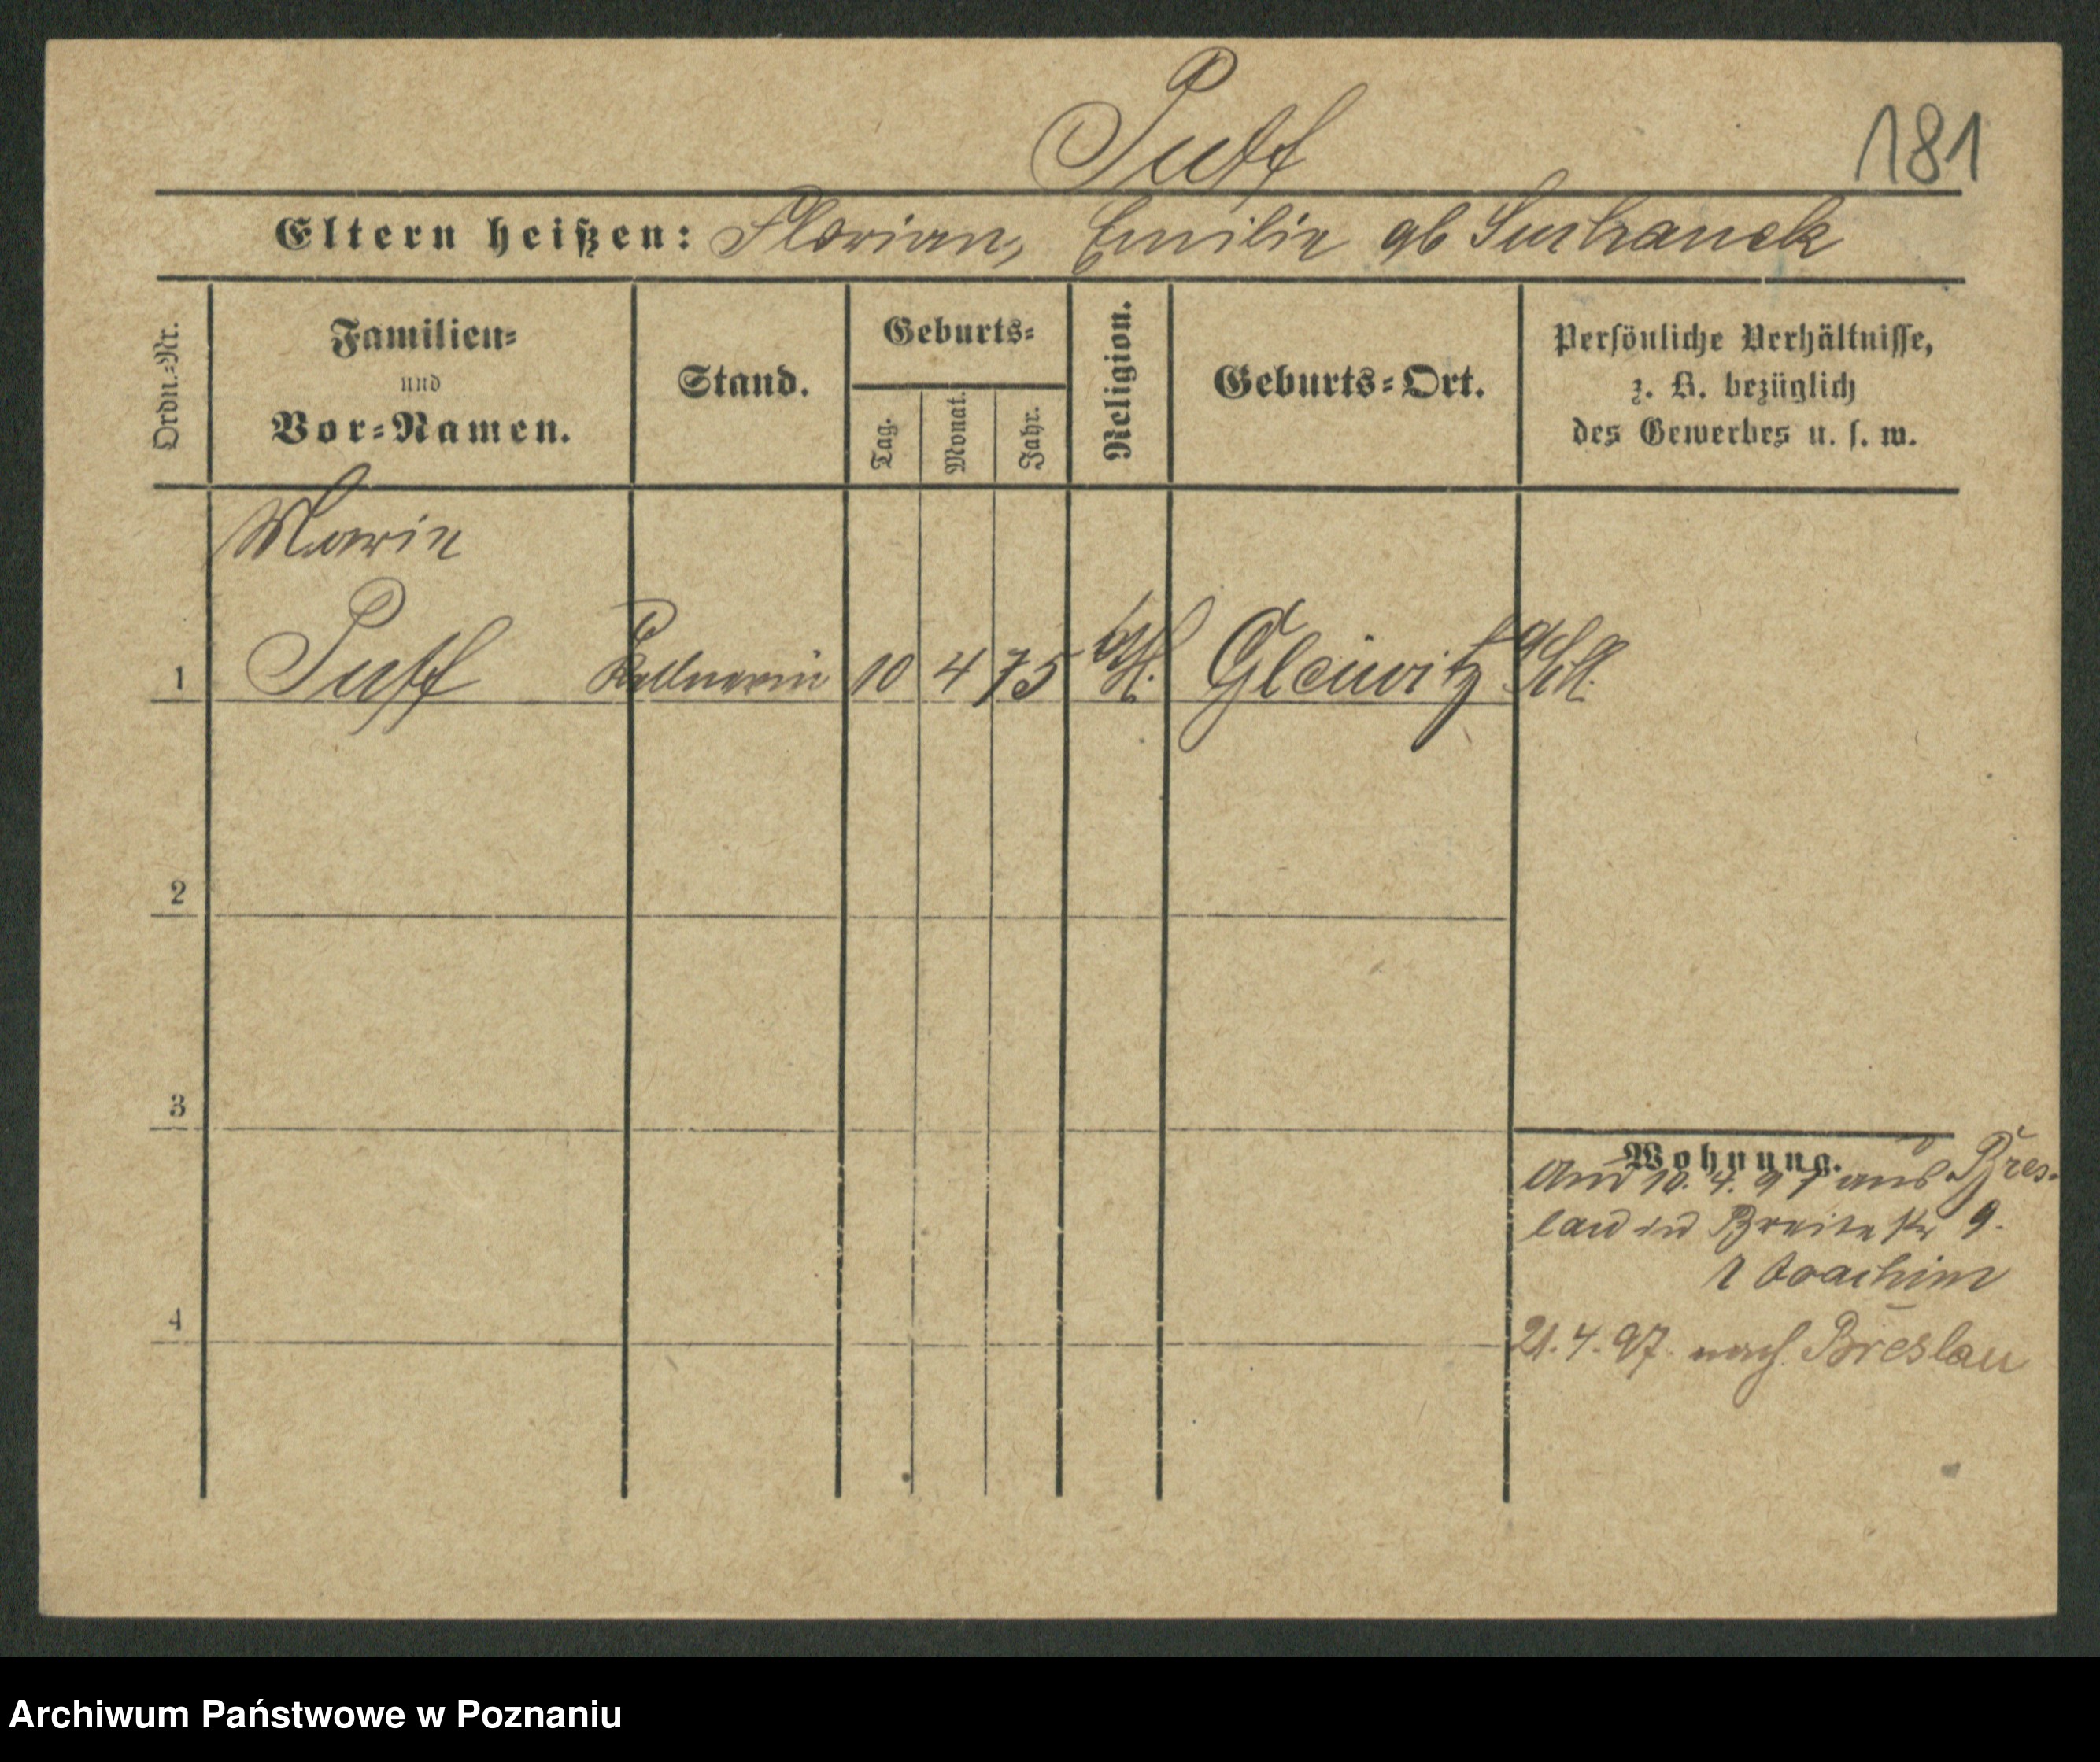 Puff
181
Eltern heißen: Florian, Emilie gb Suchanek
Ordn.=Nr.
Familien=
und
Vor=Namen.
Stand.
Geburts=
Tag.
Monat.
Jahr.
Religion.
Geburts=Ort.
Persönliche Verhältnisse,
z. B. bezüglich
des Gewerbes u. s. w.
Marie
1 Puff Kellnerin 10 4 75 kth. Gleiwitz
2
3
4
Wohnung.
10. 4. 97 aus Bres-
lau Breitestr 9.
Joachim
21. 4. 97. nach Breslau
Archiwum Państwowe w Poznaniu